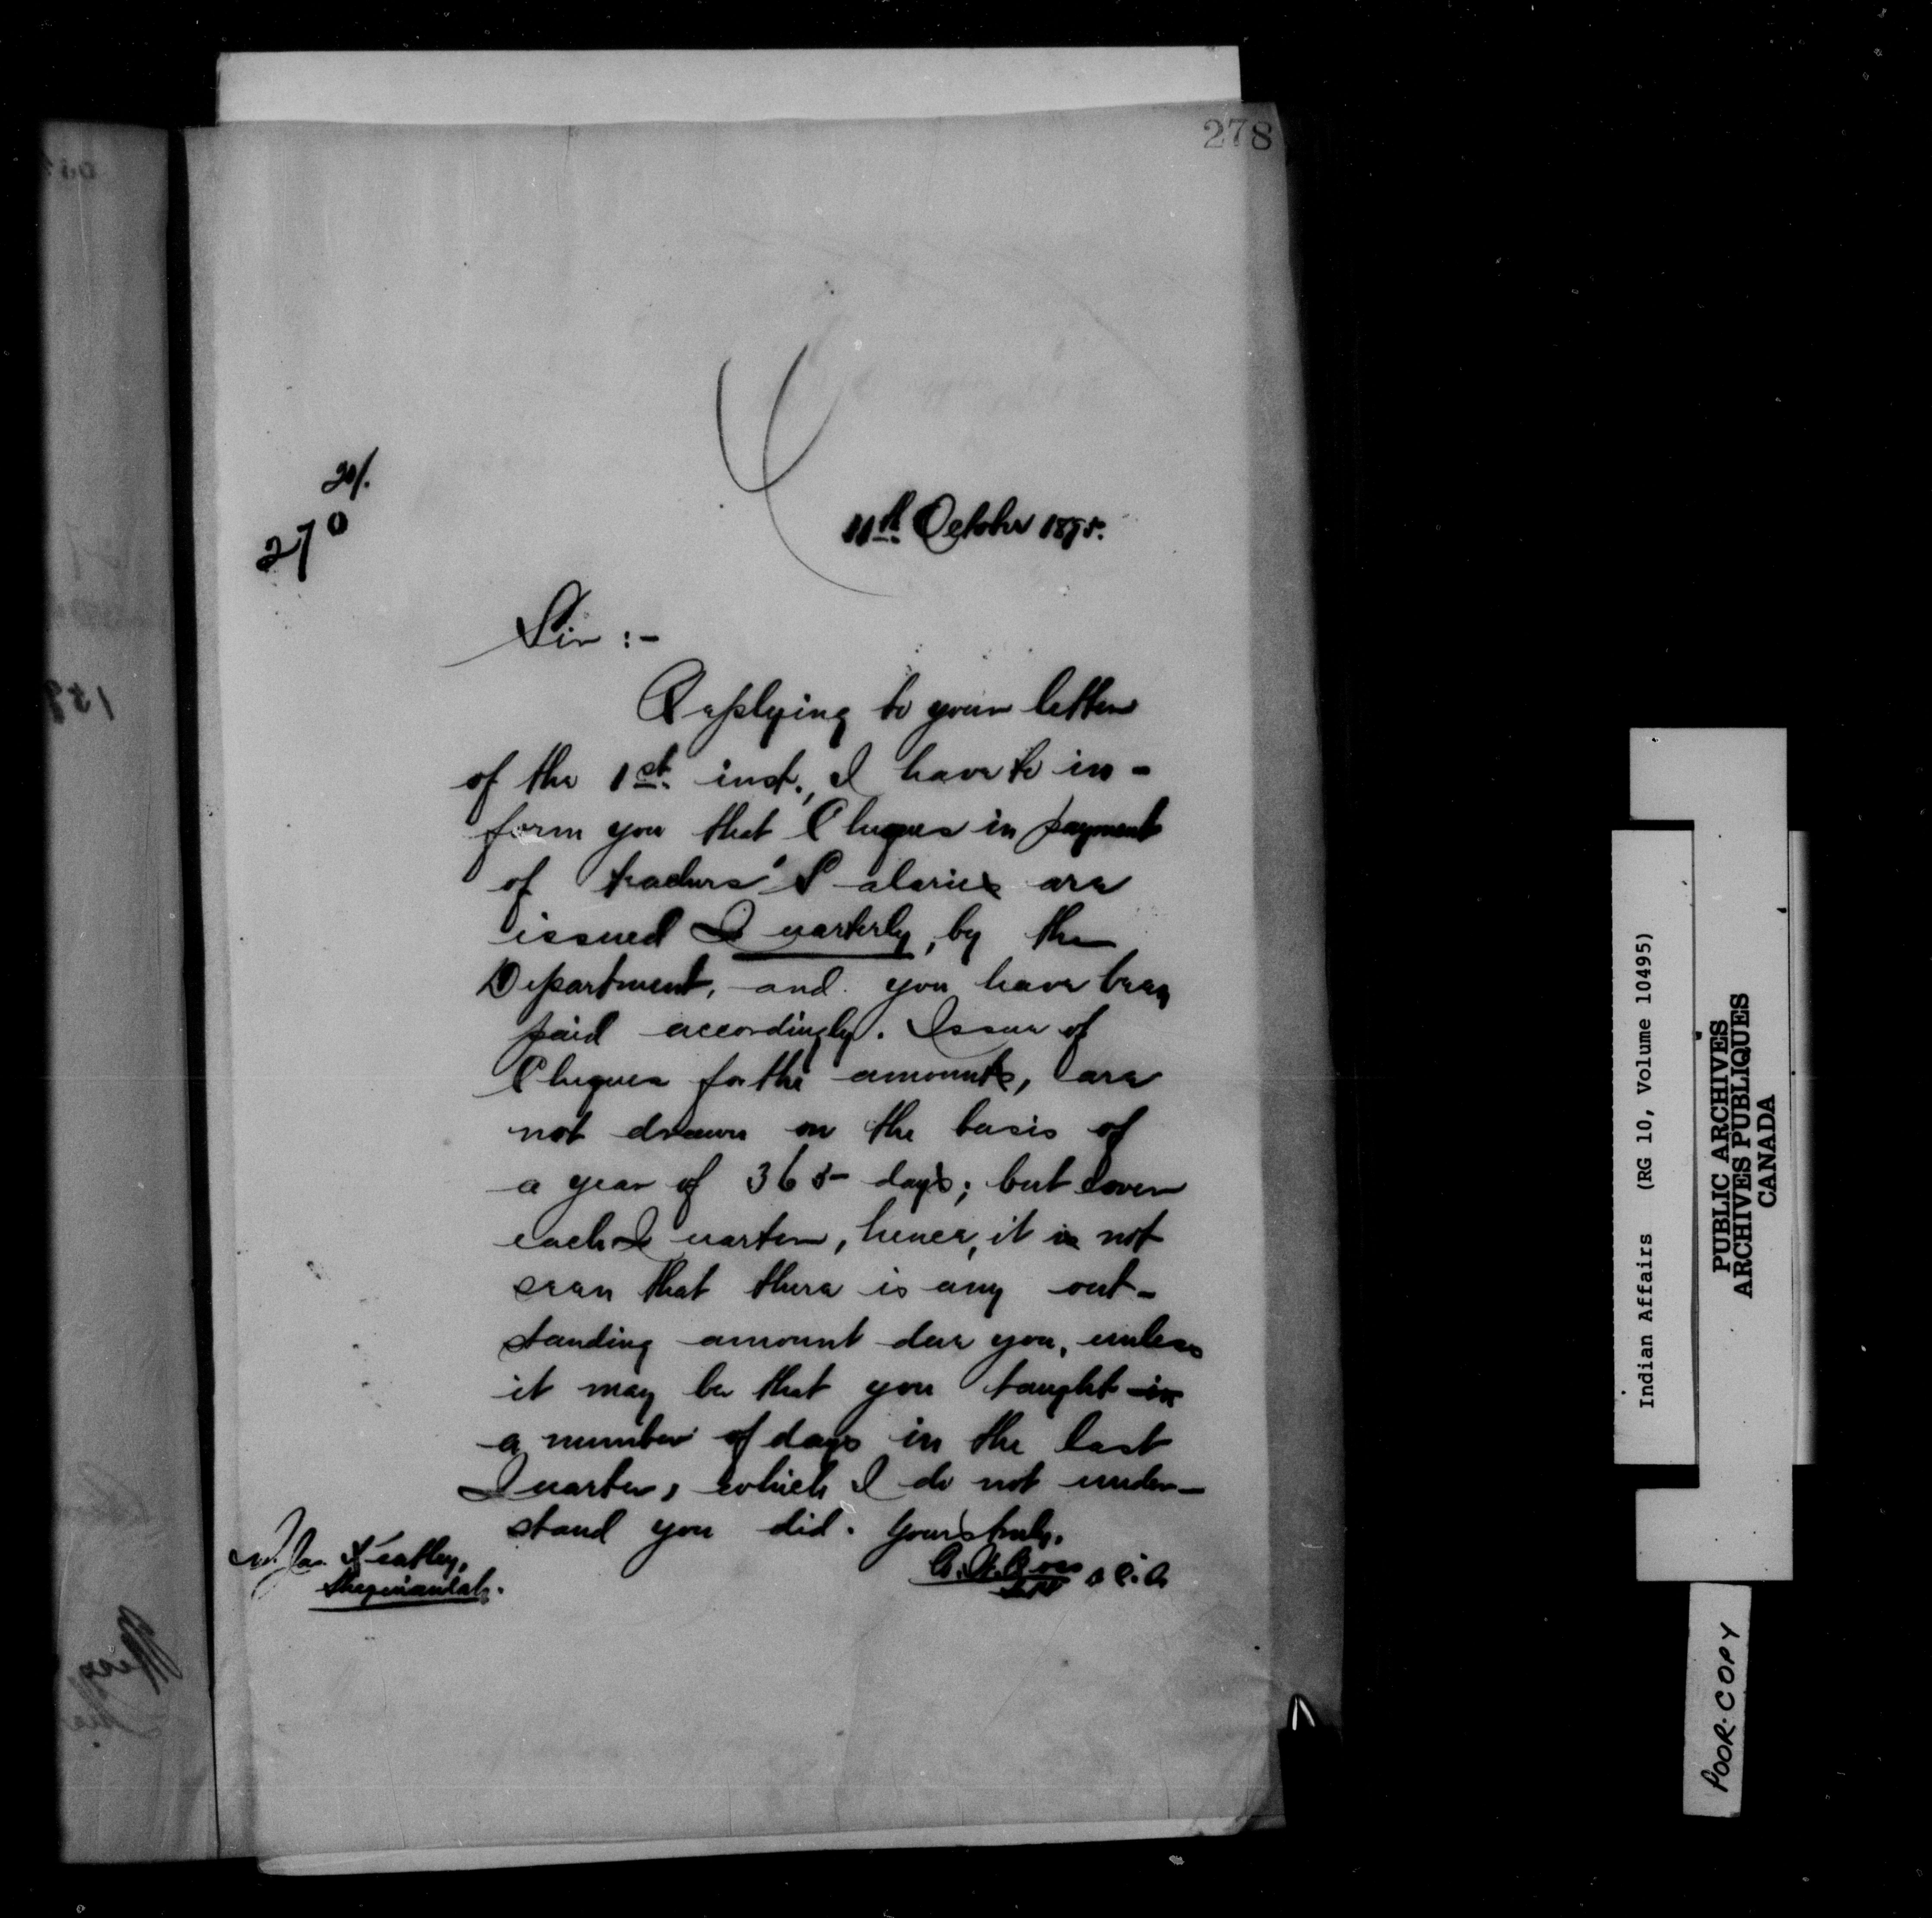 278
20/.
270
11th October 1895.
Sir :-
Replying to your letter
of the 1st. inst., I have to in-
form you that Cheques in payment
of teachers' Salaries are
issued Quarterly, by the
Department, and you have been
paid accordingly. Issue of
Cheques for the amounts, are
not drawn on the basis of
a year of 365 days; but cover
each Quarter, hence, it is not
seen that there is any out-
standing amount due you, unless
it may be that you taught in
a number of days in the last
Quarter, which I do not under-
stand you did. Yours truly,
Keatley,
Sheguiandah.
Indian Affairs (RG 10, Volume 10495)
PUBLIC ARCHIVES
ARCHIVES PUBLIQUES
CANADA
POOR COPY